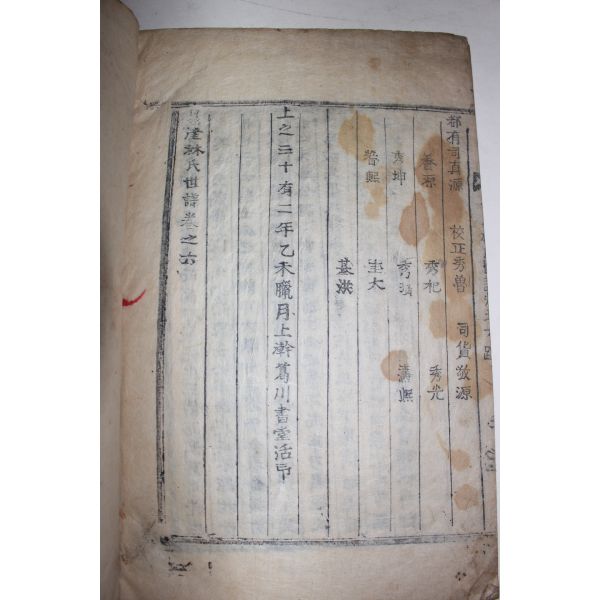 都有司真源 校正秀魯 司貨敬源
養源 秀杞 秀光
秀坤 秀 滿熙
熙 圭大
基洪
上之三十有二年乙未臘月上澣葛川書堂活印
津林氏世譜卷之六